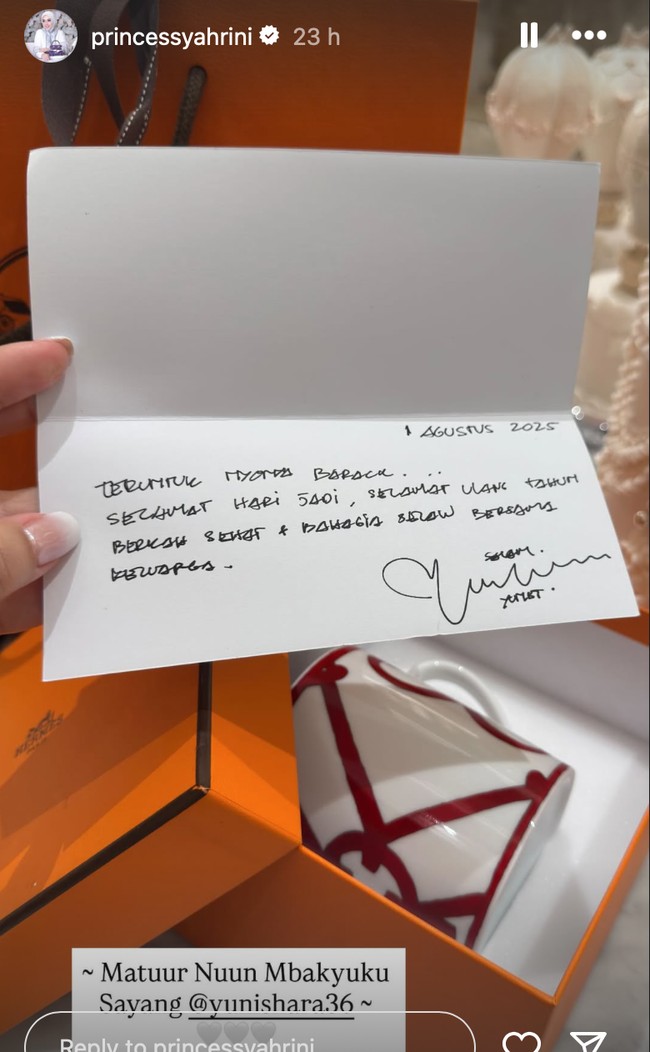 princessyahrini 23 h
1 AGUSTUS 2025
TERUNTUK NYONYA BARACK...
SELAMAT HARI JADI, SELAMAT ULANG TAHUN
BERKAH SEHAT & BAHAGIA SELALU BERSAMA
KELUARGA.
SALAM.
YUNIST.
HERMÈS
PARIS
~ Matuur Nuun Mbakyuku
Sayang @yunishara36 ~
Reply to princessyahrini